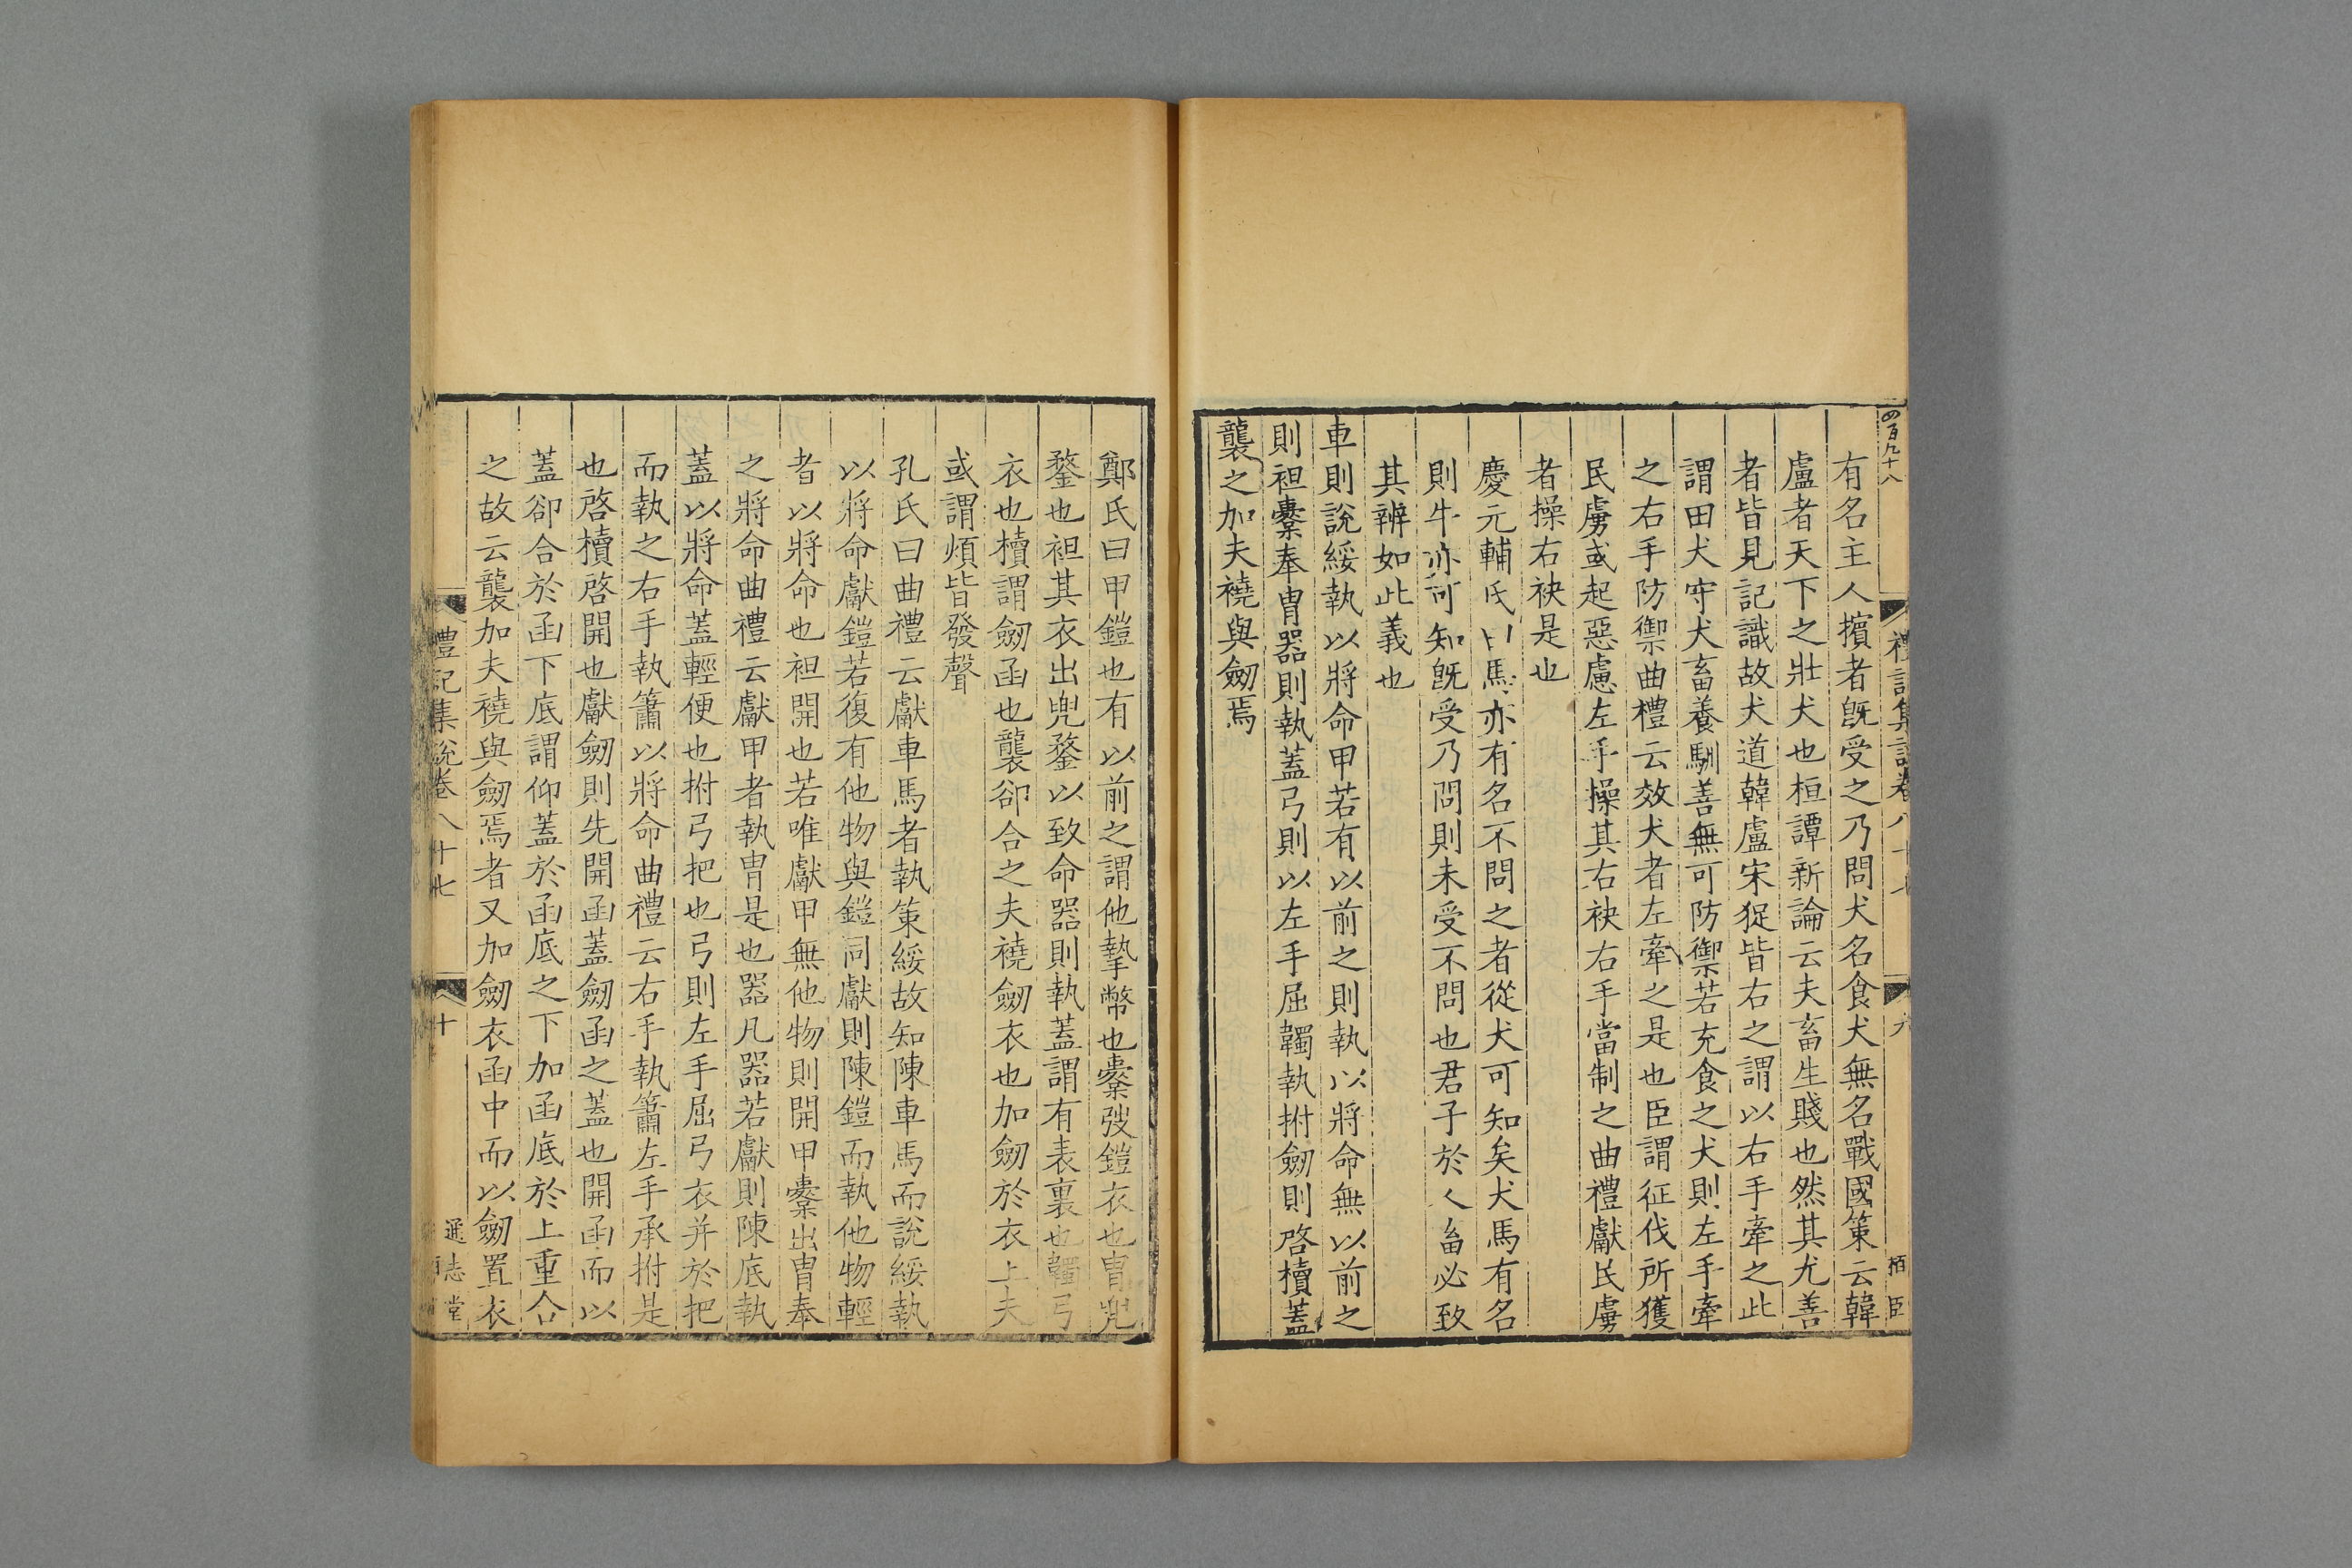 四百九十八
有名主人擯者旣受之乃問犬名食犬無名戰國策云韓
盧者天下之壯犬也桓譚新論云夫畜生賤也然其尤善
者皆見記識故犬道韓盧宋㹱皆右之謂以右手牽之此
謂田犬守犬畜養馴善無可防禦若充食之犬則左手牽
之右手防禦曲禮云效犬者左牽之是也臣謂征伐所獲
民虜或起惡慮左手操其右袂右手當制之曲禮獻民虜
者操右袂是也
慶元輔氏曰馬亦有名不問之者從犬可知矣犬馬有名
則牛亦可知旣受乃問則未受不問也君子於人畜必致
其辨如此義也
車則說綏執以將命甲若有以前之則執以將命無以前之
則袒櫜奉冑器則執蓋弓則以左手屈韣執拊劒則啓櫝蓋
襲之加夫襓與劒焉
鄭氏曰甲鎧也有以前之謂他摯幣也櫜弢鎧衣也冑兜
鍪也袒其衣出兜鍪以致命器則執蓋謂有表裏也韣弓
衣也櫝謂劒函也襲卻合之夫襓劒衣也加劒於衣上夫
或謂煩皆發聲
孔氏曰曲禮云獻車馬者執策綏故知陳車馬而說綏執
以將命獻鎧若復有他物與鎧同獻則陳鎧而執他物輕
者以將命也袒開也若唯獻甲無他物則開甲櫜出冑奉
之將命曲禮云獻甲者執冑是也器凡器若獻則陳底執
蓋以將命蓋輕便也拊弓把也弓則左手屈弓衣并於把
而執之右手執簫以將命曲禮云右手執簫左手承拊是
也啓櫝啓開也獻劒則先開函蓋劒函之蓋也開函而以
蓋卻合於函下底謂仰蓋於函底之下加函底於上重合
之故云襲加夫襓與劒焉者又加劒衣函中而以劒置衣
禮記集說卷八十七
十
通志堂